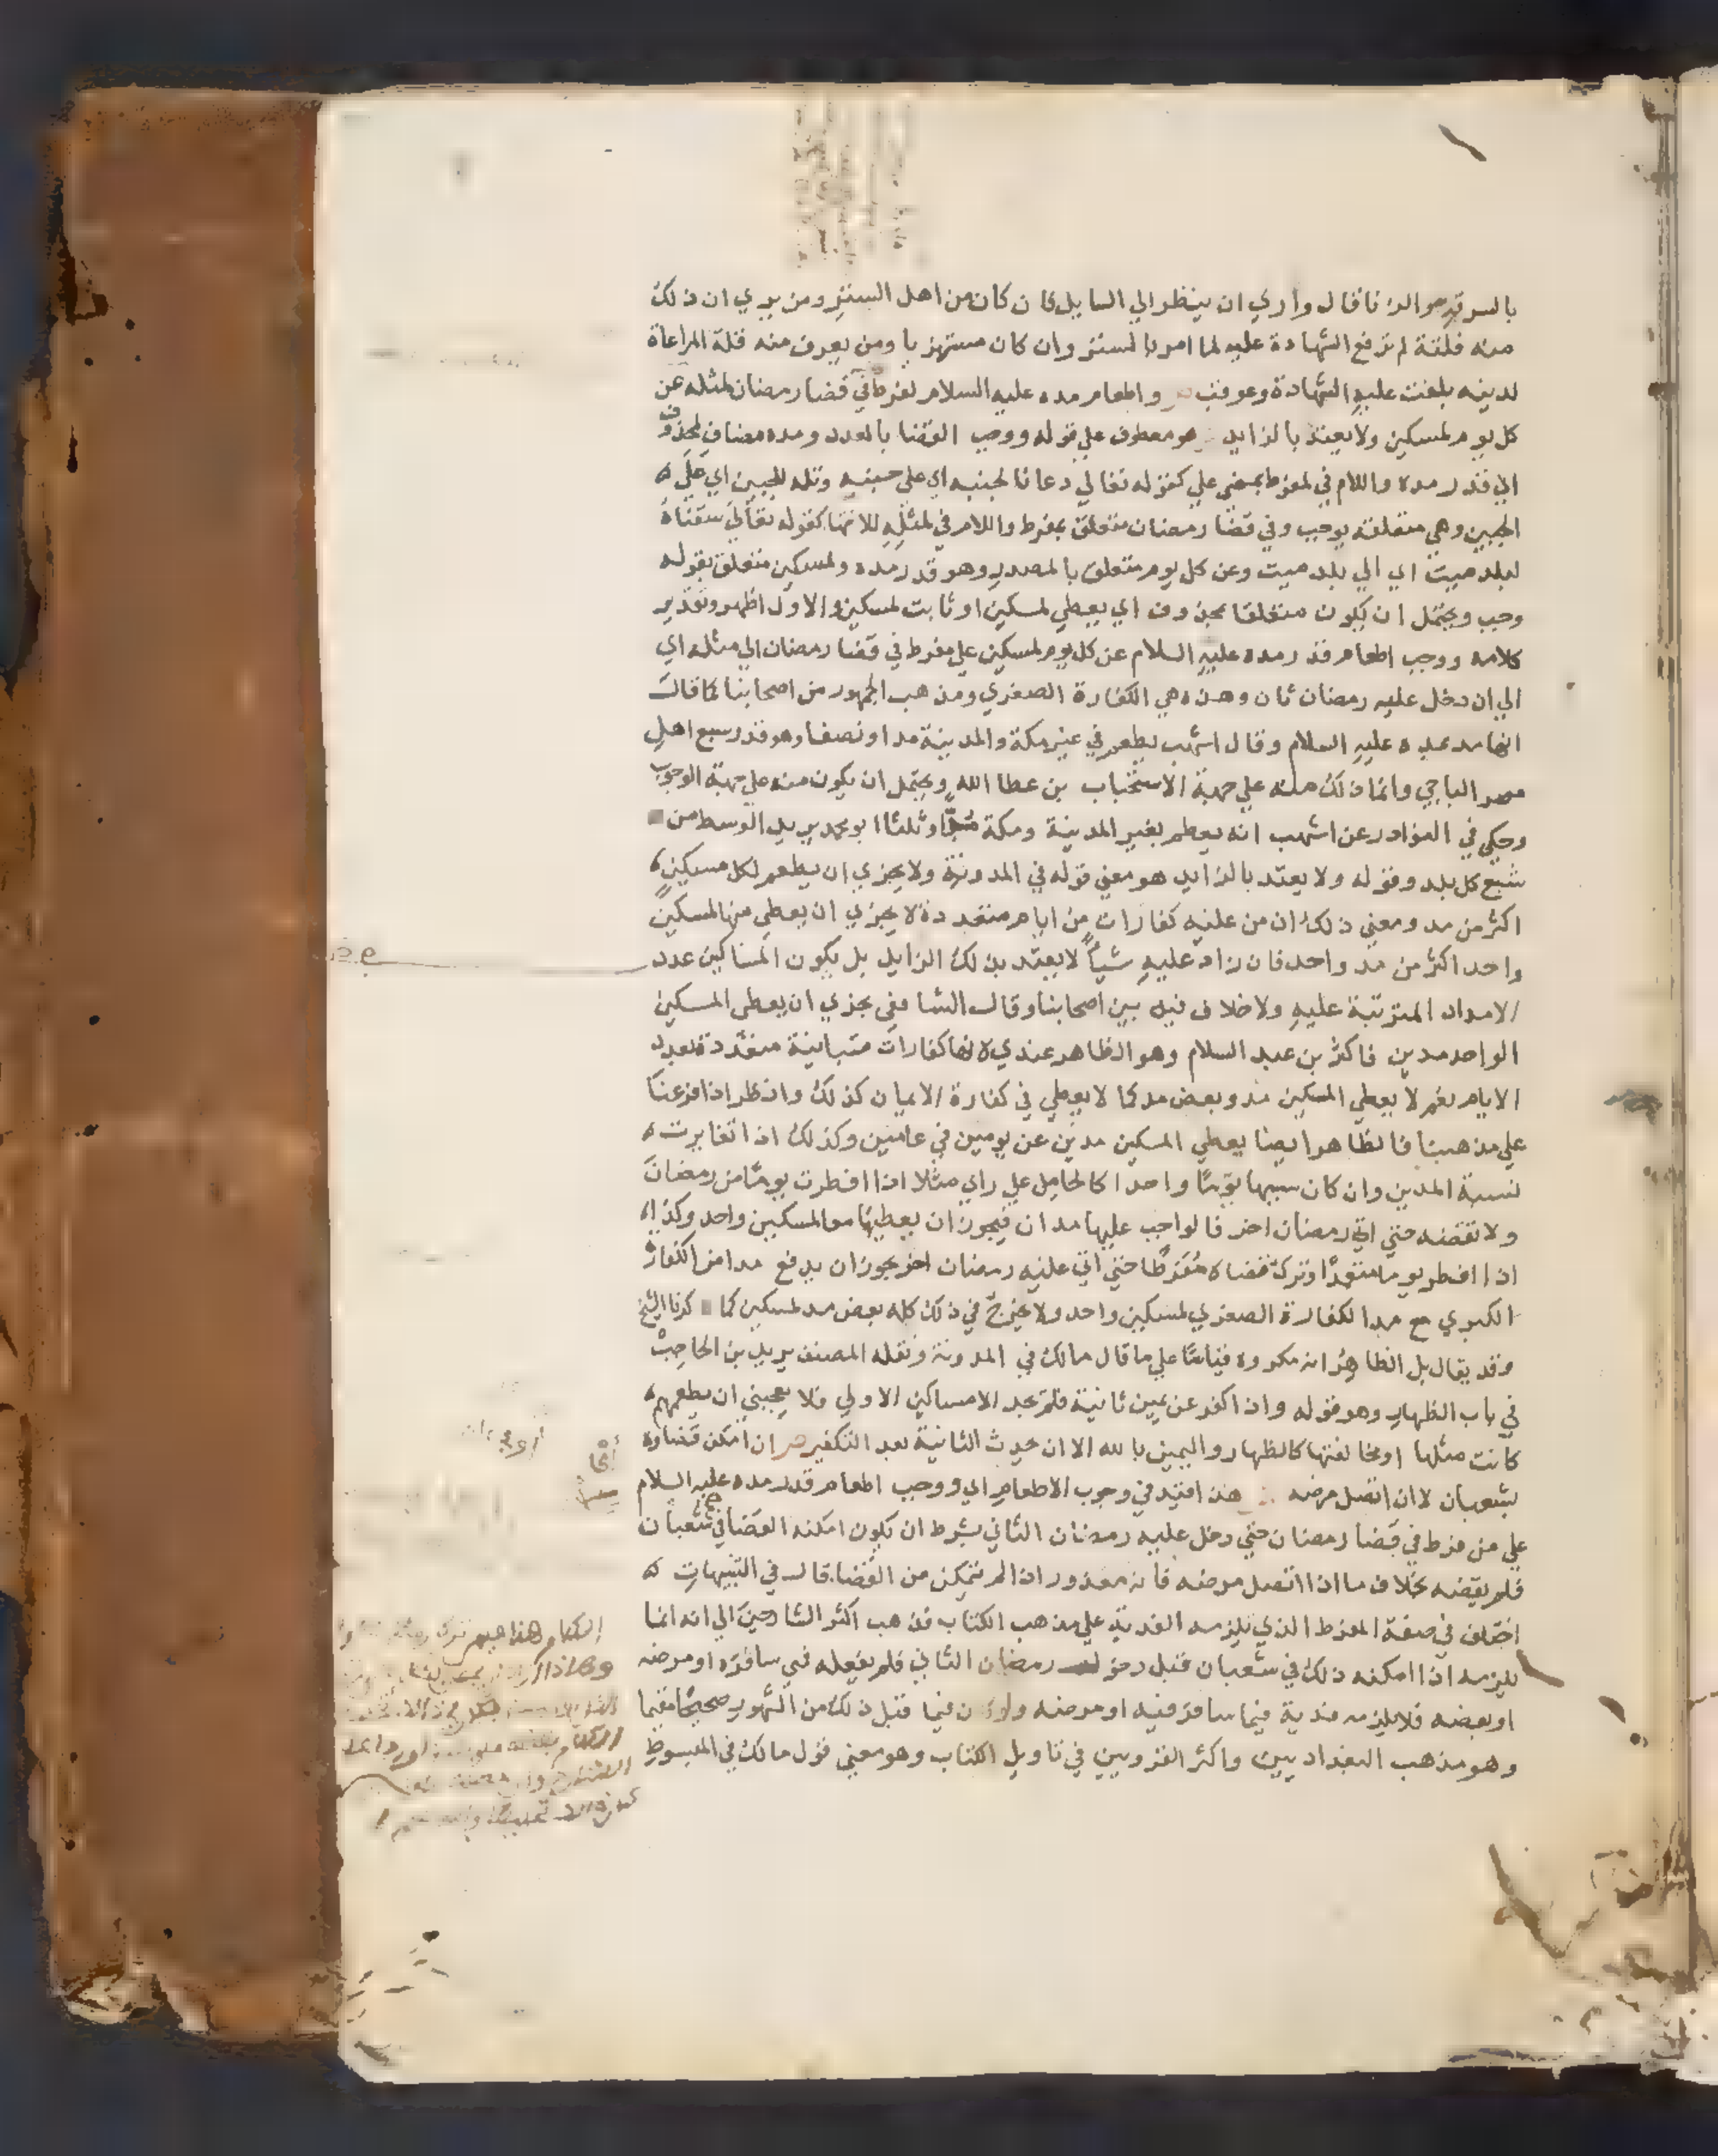 بالسرقة والزنا فقال واري ان ينظر الي السايل فان كان من اهل الستر ومن يري ان ذلك
منه فلتة لم ترفع الشهادة عليه لما امر بالستر وان كان مستهزيا ومن يعرف منه قلة المراعاة
لدينه بلغت عليه الشهادة وعوقب ص واطعام مده عليه السلام لمفرط في قضا رمضان لمثله عن
كل يوم لمسكين ولا يعتد بالزايد هو معطوف علي قوله ووجب القضا بالعدد ومده مضاف لمحذوف
اي قدر مده واللام في لمفرط بمعني علي كقوله تعالي دعانا لجنبه اي علي جنبه وتله للجبين اي علي
الجبين وهي متعلقة بوجب وفي قضا رمضان متعلق بمفرط واللام في لمثله للانتها كقوله تعالي سقناه
لبلد ميت اي الي بلد ميت وعن كل يوم متعلق بالمصدر وهو قدر مده ولمسكين متعلق بقوله
وجب ويحتمل ان يكون متعلقا بمحذوف اي يعطي لمسكين او ثابت لمسكين والاول اظهر وتقدير
كلامه ووجب اطعام قدر مده عليه السلام عن كل يوم لمسكين علي مفرط في قضا رمضان الي مثله اي
الي ان دخل عليه رمضان ثان وهذه هي الكفارة الصغري ومذهب الجمهور من اصحابنا كما قال
انها مد بمده عليه السلام وقال اشهب يطعم في غير مكة والمدينة مدا ونصفا وهو قدر سبع اهل
مصر الباجي وانما ذلك منه علي جهة الاستحباب بن عطا الله ويحتمل ان يكون منه علي جهة الوجوب
وحكي في النوادر عن اشهب انه يطعم بغير المدينة ومكة مدا وثلثا ابو محمد يريد الوسط من
شبع كل بلد وقوله ولا يعتد بالزايد هو معني قوله في المدونة ولا يجزي ان يطعم لكل مسكين
اكثر من مد ومعني ذلك ان من عليه كفارات من ايام متعددة لا يجزي ان يعطي منها لمسكين
واحد اكثر من مد واحد فان زاد عليه شيأ لا يعتد بذلك الزايد بل يكون المساكين عدد
الامداد المترتبة عليه ولا خلاف فيه بين اصحابنا وقال الشافعي يجزي ان يعطي المسكين
الواحد مدين فاكثر بن عبد السلام وهو الظاهر عندي لانها كفارات متباينة متعددة بعدد
الايام نعم لا يعطي المسكين مد وبعض مد كما لا يعطي في كفارة الايمان كذلك وانظر اذا فرعنا
علي مذهبنا فالظاهر ايضا يعطي المسكين مدين عن يومين في عامين وكذلك اذا تغايرت
نسبة المدين وان كان سببهما يوما واحدا كالحامل علي راي مثلا اذا افطرت يوما من رمضان
ولا تقضه حتي اتي رمضان اخر فالواجب عليها مدان فيجوز ان يعطيهما معا لمسكين واحد وكذا
اذا افطر يوما متعمدا وترك قضاه مفرطا حتي اتي عليه رمضان اخر يجوز ان يدفع مدا من الكفارة
الكبري مع مد الكفارة الصغري لمسكين واحد ولا يخرج في ذلك كله بعض مد لمسكين كما كرنا الشيخ
وقد يقال بل الظاهر انه مكروه قياسا علي ما قال مالك في المدونة ونقله المصنف يريد بن الحاجب
في باب الظهار وهو قوله واذا كفر عن يمين ثانية فلم يجد الا مساكين الاولي فلا يعجبني ان يطعمهم
كانت مثلها او مخالفتها كالظهار واليمين بالله الا ان يحدث الثانية بعد التكفير ص ان امكن قضاوه
بشعبان لا ان اتصل مرضه هذا قيد في وجوب الاطعام اي ووجب اطعام قدر مده عليه السلام
علي من فرط في قضا رمضان حتي دخل عليه رمضان الثاني بشرط ان يكون امكنه القضا في شعبان
فلم يقضه بخلاف ما اذا اتصل مرضه فانه معذور اذا لم يتمكن من القضا قال في التنبيهات
اختلف في صفة المفرط الذي يلزمه الفدية علي مذهب الكتاب فذهب اكثر الشارحين الي انه انما
يلزمه اذا امكنه ذلك في شعبان قبل دخول رمضان الثاني فلم يفعله فمتي سافره او مرضه
او بعضه فلا يلزمه فدية فيما سافر فيه او مرضه ولو كان فيما قبل ذلك من الشهور صحيحا مقيما
وهو مذهب البغداديين واكثر القرويين في تاويل الكتاب وهو معني قول مالك في المبسوط